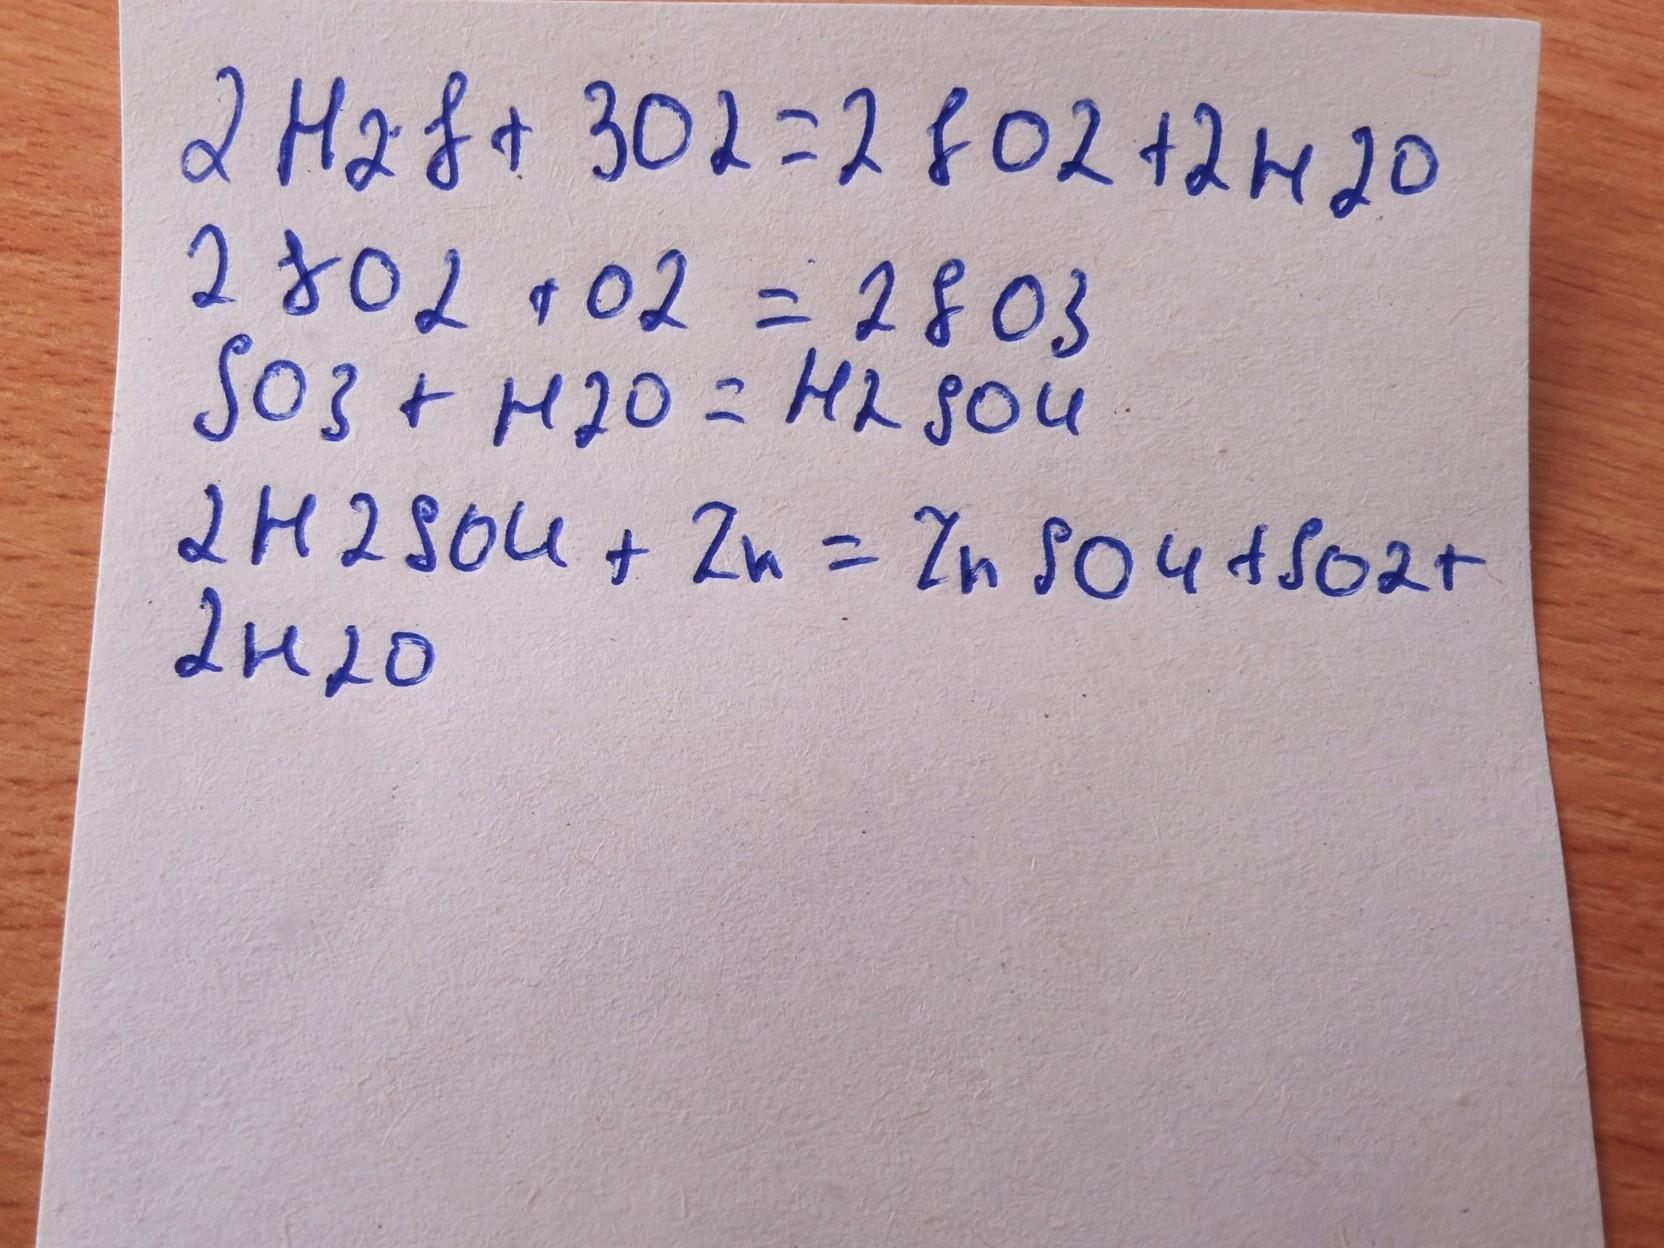 2H2S + 3O2 = 2SO2 + 2H2O
2SO2 + O2 = 2SO3
SO3 + H2O = H2SO4
2H2SO4 + Zn = ZnSO4 + SO2 +
2H2O